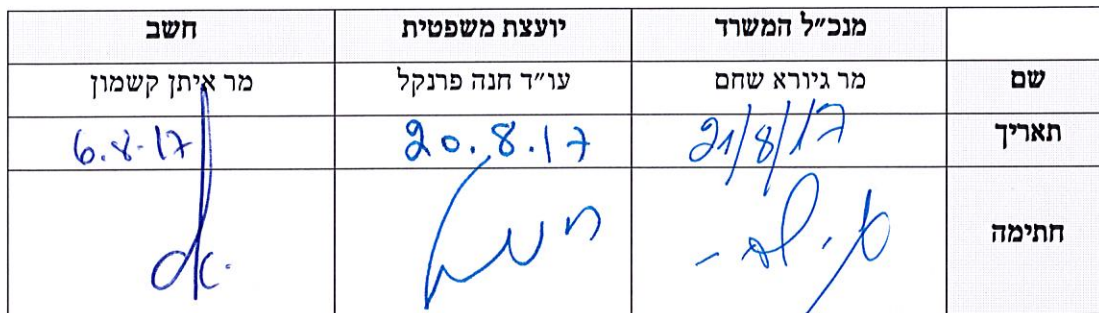 מנכ״ל המשרד יועצת משפטית חשב
שם מר גיורא שחם עו״ד חנה פרנקל מר איתן קשמון
תאריך 21/8/17 20.8.17 6.8.17
חתימה